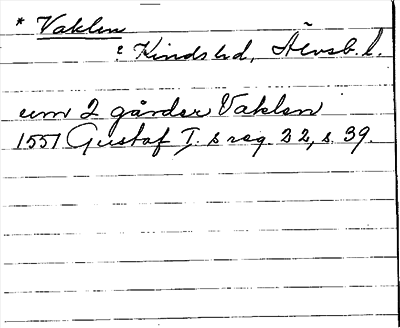 * Vaklen
i Kinds hd, Älvsb. l.
um 2 gårder Vaklen
1551 Gustaf I:s reg. 22, s. 39.